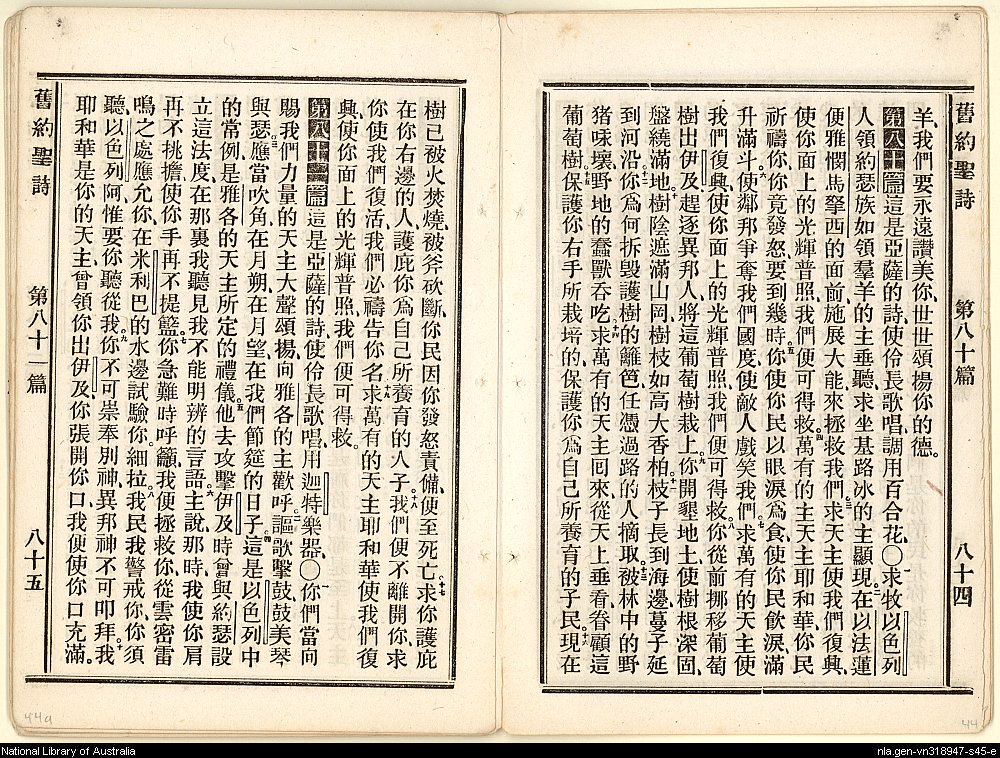 舊約聖詩 第八十篇 八十四
羊、我們要永遠讚美你、世世頌揚你的德。
第八十篇這是亞薩的詩、使伶長歌唱、調用百合花、〇一求牧以色列
人領約瑟族如領羣羊的主垂聽、求坐基路冰的主顯現、二在以法蓮
便雅憫馬拏西的面前、施展大能來拯救我們、三求天主使我們復興、
使你面上的光輝普照、我們便可得救、四萬有的主天主耶和華、你民
祈禱你、你竟發怒要到幾時、五你使你民以眼淚爲食、使你民飲淚滿
升滿斗、六使鄰邦爭奪我們國度、使敵人戲笑我們、七求萬有的天主使
我們復興、使你面上的光輝普照、我們便可得救、八你從前挪移葡萄
樹出伊及、趕逐異邦人、將這葡萄樹栽上、九你開墾地土、使樹根深固、
盤繞滿地、十樹陰遮滿山岡、樹枝如高大香柏、十一枝子長到海邊、蔓子延
到河沿、十二你爲何拆毀護樹的籬笆、任憑過路的人摘取、十三被林中的野
猪咊壞、野地的蠢獸吞吃、十四求萬有的天主回來、從天上垂看、眷顧這
葡萄樹、十五保護你右手所栽培的、保護你爲自己所養育的子、十六民現在
樹已被火焚燒、被斧砍斷、你民因你發怒責備、便至死亡、十七求你護庇
在你右邊的人、護庇你爲自己所養育的人子、十八我們便不離開你、求
你使我們復活、我們必禱告你名、十九求萬有的天主耶和華、使我們復
興、使你面上的光輝普照、我們便可得救。
第八十一篇這是亞薩的詩、使伶長歌唱、用迦特樂器、〇一你們當向
賜我們力量的天主大聲頌揚、向雅各的主歡呼、二謳歌擊鼓鼓美琴
與瑟、三應當吹角、在月朔、在月望、在我們節筵的日子、四這是以色列中
的常例、是雅各的天主所定的禮儀、五他去攻擊伊及時、曾與約瑟設
立這法度、在那裏我聽見我不能明辨的言語、六主說、那時我使你肩
再不挑擔、使你手再不提籃、七你急難時呼籲、我便拯救你、從雲密雷
鳴之處應允你、在米利巴的水邊試驗你。細拉八我民、我警戒你、你須
聽、以色列阿、惟要你聽從我、九你不可崇奉別神、異邦神不可叩拜、十我
耶和華是你的天主、曾領你出伊及、你張開你口、我便使你口充滿。
舊約聖詩 第八十一篇 八十五
44a
44
National Library of Australia
nla.gen-vn318947-s45-e